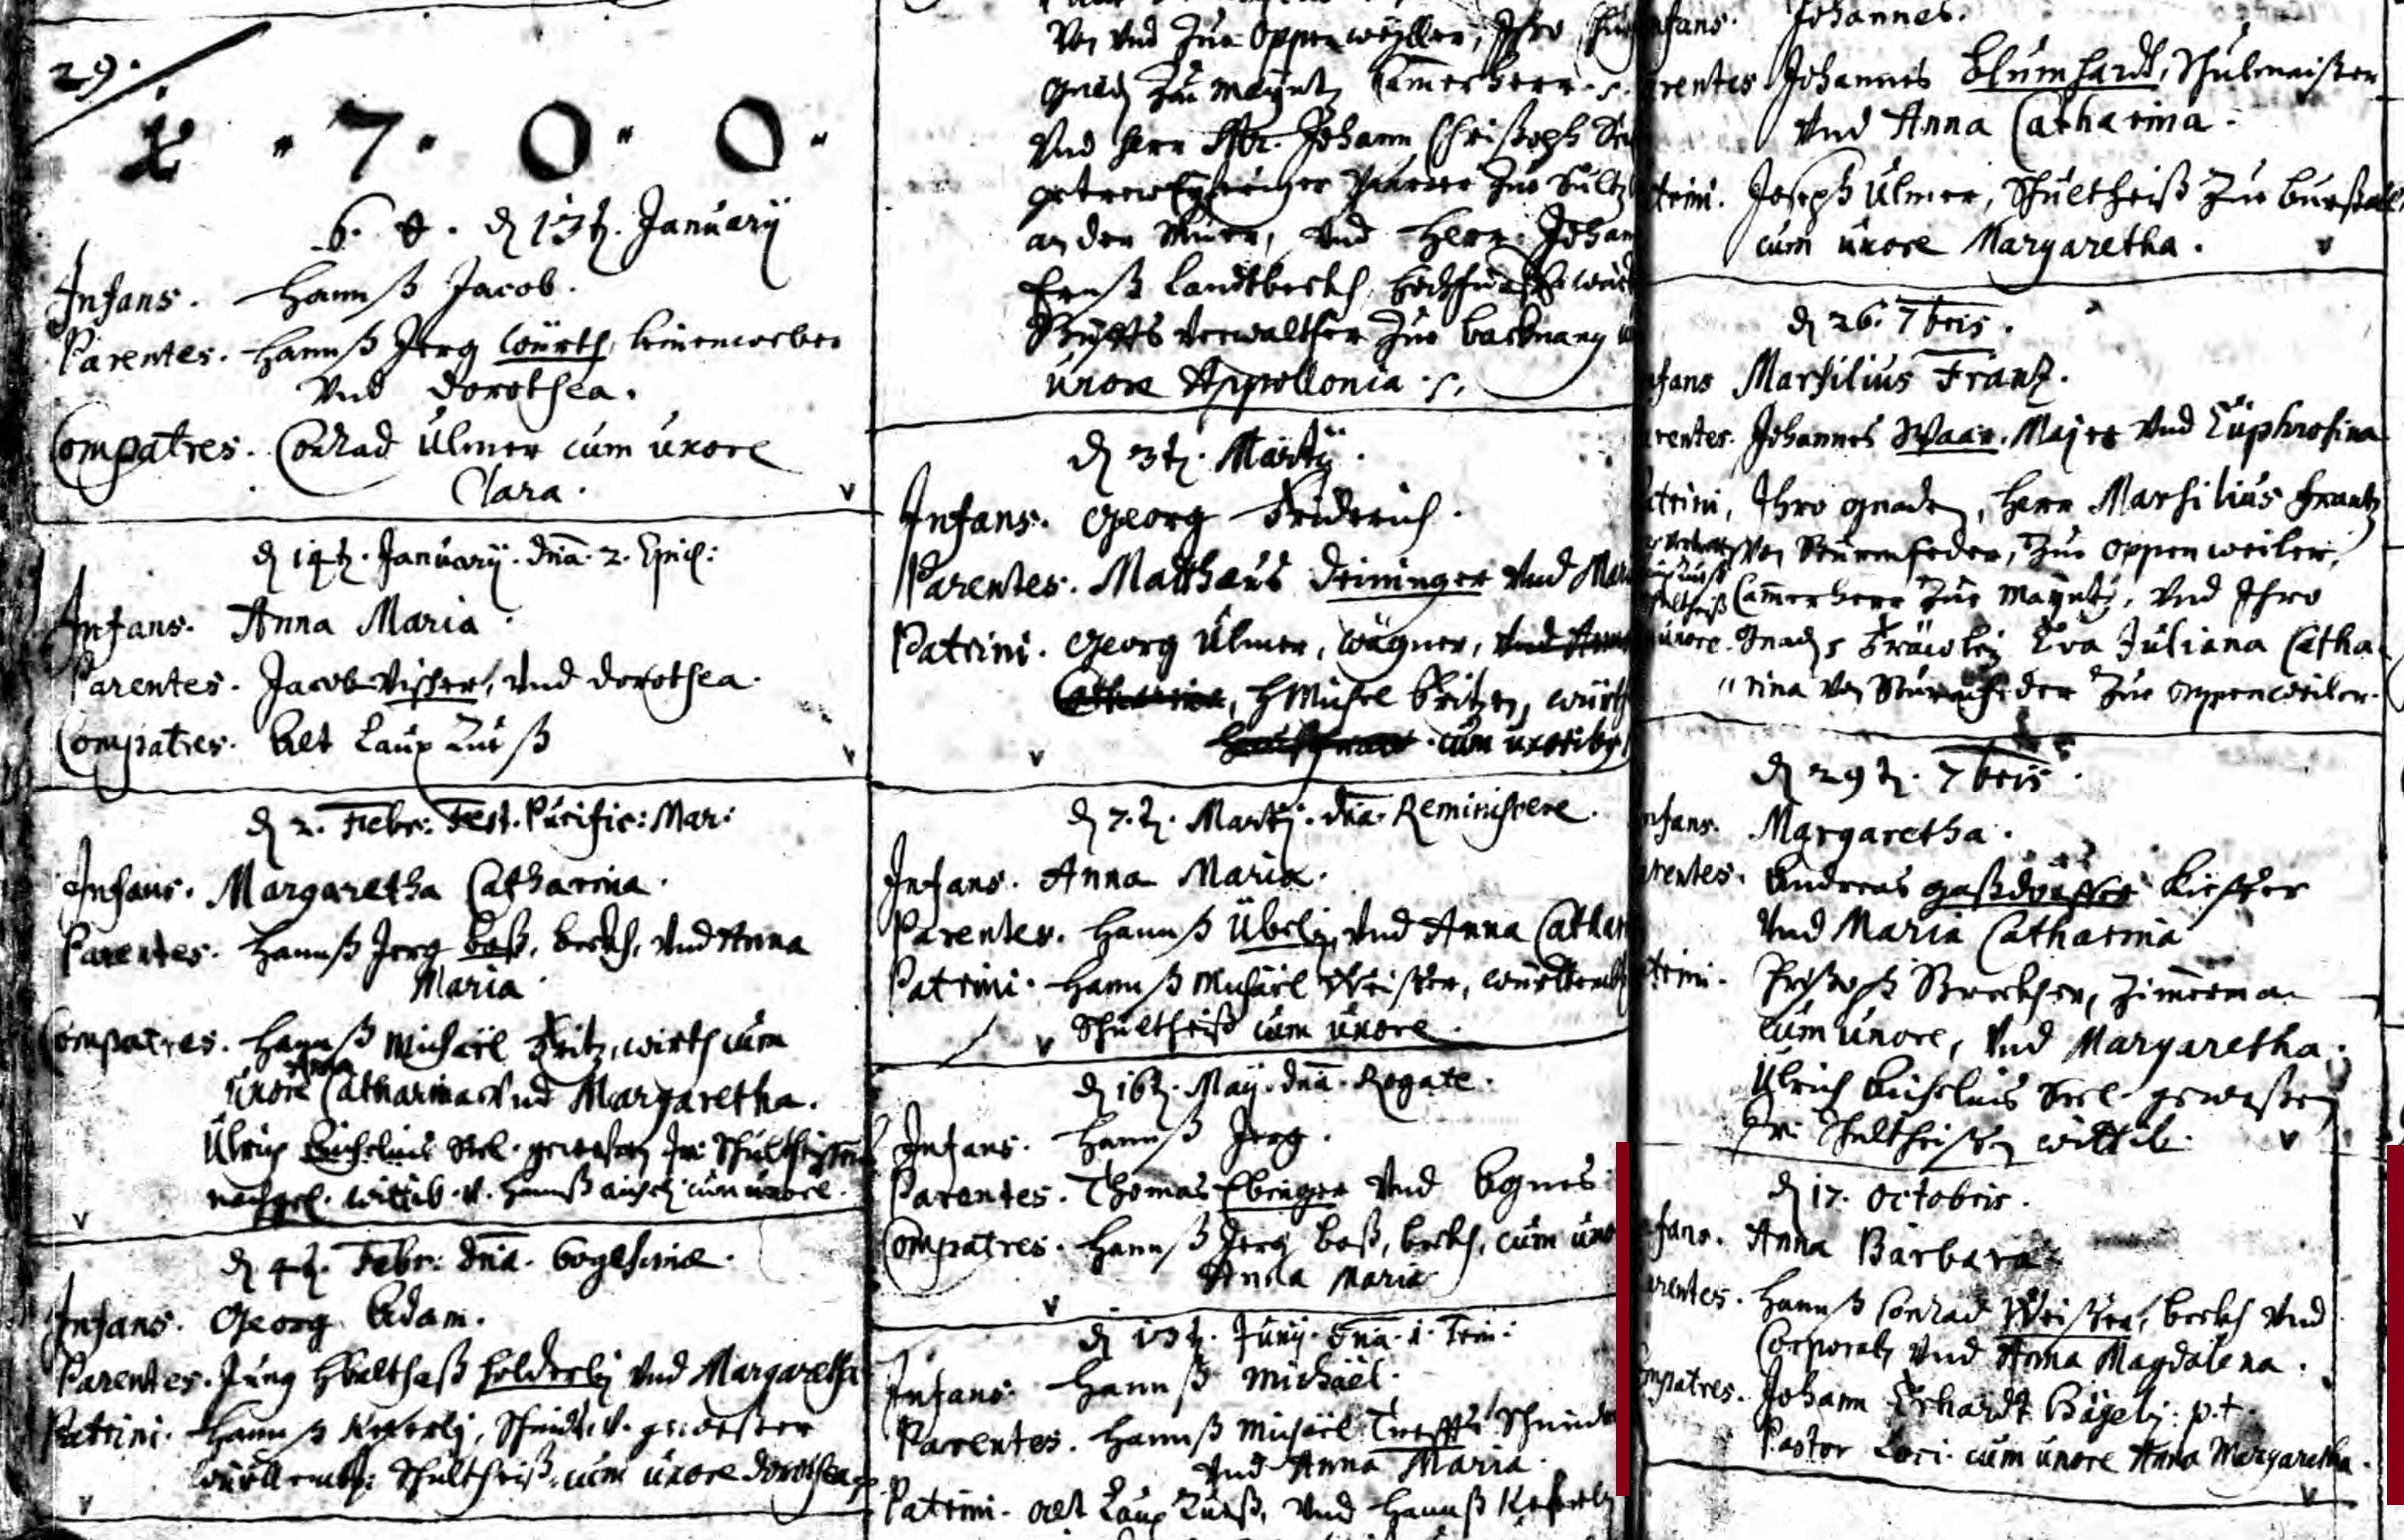 29.
1 . 7 . 0 . 0 .
d 13t. Januarij
Infans. Hannß Jacob.
Parentes. Hannß Jerg Würth, leinenweber
Vnd Dorothea.
Compatres. Conrad Ulmer cum uxore
Clara. v
d 14t. Januarij. dnâ. 2. Epiph:
Infans. Anna Maria.
Parentes. Jacob Visher, Vnd Dorothea.
Compatres. Alt
d 2. Febr: Fest. Purific: Mar:
Infans. Margaretha Catharina.
Parentes. Hannß Jerg Baß, beckh, Vnd Anna
Maria.
Compatres. Hannß Michaël Fritz, wirth cum
uxore Anna Catharina Vnd Margaretha.
Ulrich Eichelins Seel. gewesten Schultheißen
nachgel. wittib. v. Hannß cum uxore.
v
d 4t. Febr: dnâ.
Infans. Georg Adam.
Parentes. Jung Balthaß Holderlin Vnd Margaretha
Patrini. Hannß Keferlin, Schmidt, v. gewester
württemb: Schultheiß, cum uxore Dorothea.
v
Von Vnd Zue Oppenweyller, Ihro
gnad Zu Maynts Cammerherr
Vnd Herr Mr. Johann Christoph
getrewe Pfarrer Zue Sultz
an der Murr, Vnd Herr Johan
Ernst Landtbeckh,
Stüffts Verwalther Zue Backnang
uxore Appollonia
d 3t. Martij.
Infans. Georg Friderich.
Parentes. Matthaeus Deininger Vnd Mar
Patrini. Georg Ulmer, Wagner, Vnd Anna
Catharina, H Michel Fritzen, würth
cum uxoribus
v
d 7.t. Martij. dnâ. Reminiscere.
Infans. Anna Maria.
Parentes. Hannß Übelin, Vnd Anna Cathar
Patrini. Hannß Michaël Pfeister, württemb
v Schultheiß cum uxore.
d 16t. Maij. dnâ. Rogate.
Infans. Hannß Jerg.
Parentes. Thomas Ebinger Vnd Agnes
Compatres. Hannß Jerg Baß, beckh, cum uxo
Anna Maria
v
d 13t. Junij. dnâ. 1. Trin:
Infans. Hannß Michaël.
Parentes. Hannß Michaël Schneider
Vnd Anna Maria.
Patrini. Alt Vnd Hannß Keferlin
nfans. Johannes.
rentes Johannes Blumhardt, Schulmaister
Vnd Anna Catharina.
trini. Joseph Ulmer, Schultheiß Zue Burstall
cum uxore Margaretha. v
d 26. 7bris.
nfans Marsilius Frantz.
rentes. Johannes Waar. Mayer Vnd Euphrosina
atrini, Ihro gnaden, Herr Marsilius Frantz
Von Sturmfeder, Zue Oppenweiler,
Cammerherr Zue Mayntz, Vnd Ihro
uxore. Gnad Fräwlein Eva Juliana Catha
rina Von Sturmfeder Zue Oppenweiler.
d 29t. 7bris.
nfans. Margaretha.
rentes. Andreas Gaßdorffer Kieffer
Vnd Maria Catharina
trini. Christoph Zimmerman
cum uxore, Vnd Margaretha.
Ulrich Eichelins Seel. gewesten
Schultheißen wittib. v
d 17. Octobris.
fans. Anna Barbara
rentes. Hannß Conrad Pfeister, beckh Vnd
Corporal, Vnd Anna Magdalena.
mpatres. Johann Erhardt Bägelin. p.t.
Pastor Loci. cum uxore Anna Margaretha.
v